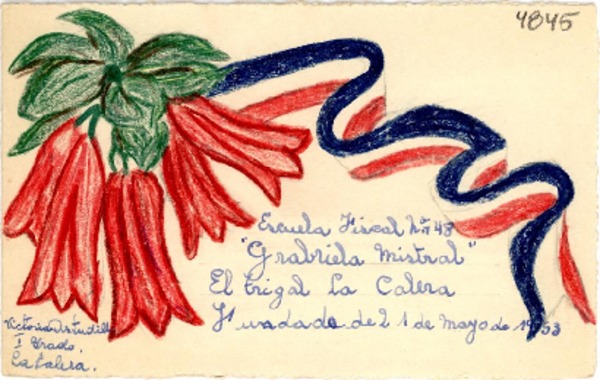 4845
Escuela Fiscal Nº 48
"Grabriela Mistral"
El Trigal La Calera
Fundada de 21 de Mayo de 1953
Victoria Astudillo
I Grado.
La Calera.